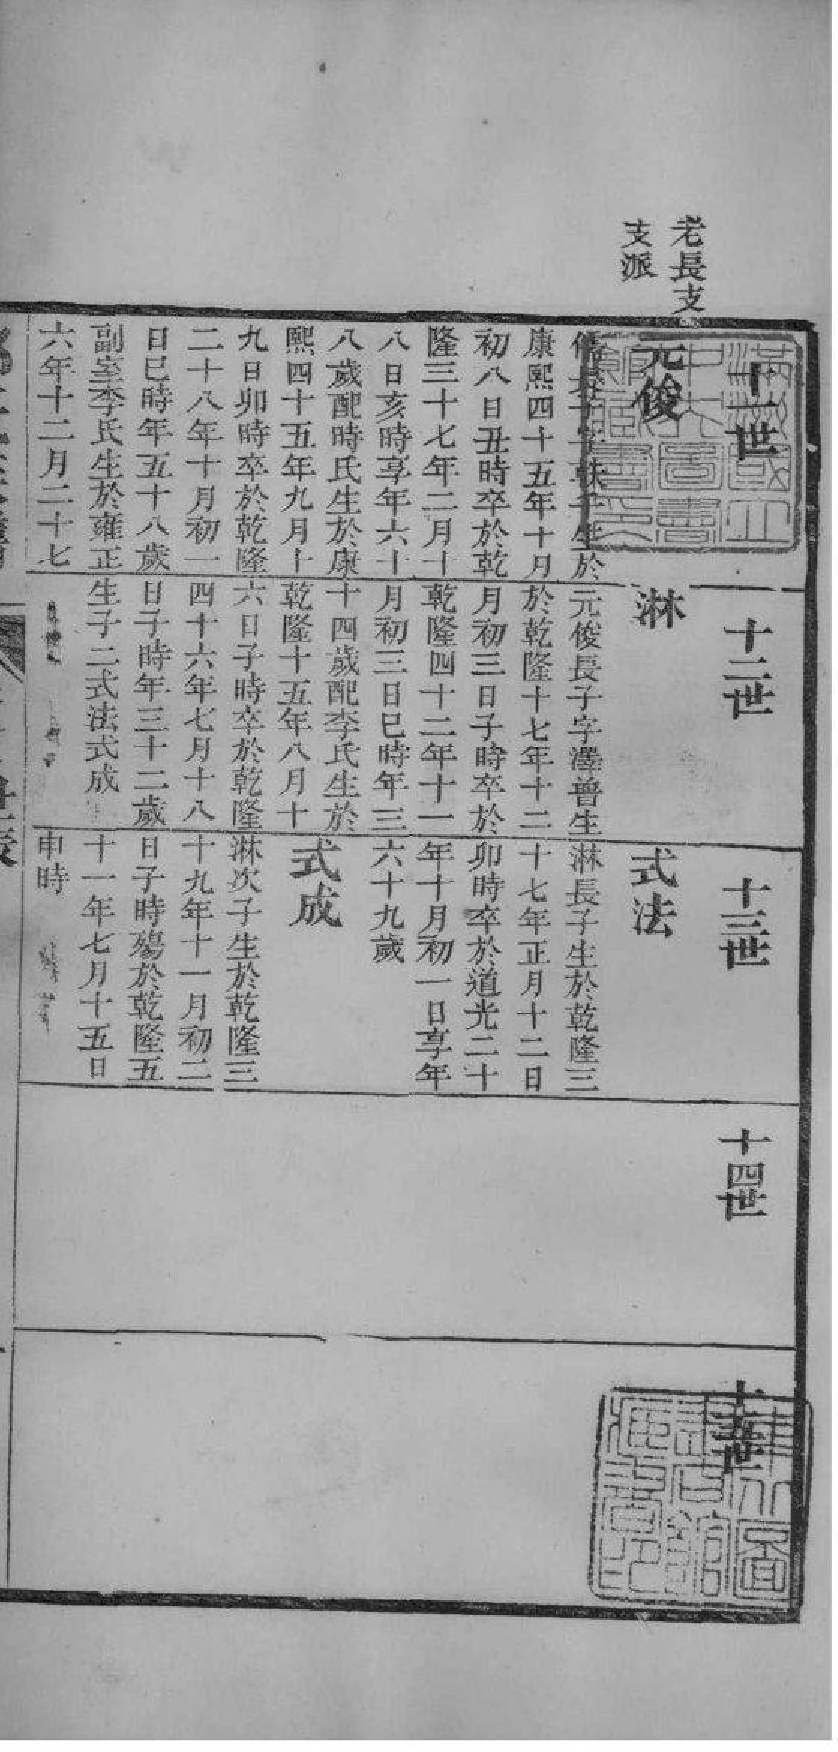 老長支
支派
十一世
元俊
康熙四十五年十月
初八日丑時卒於乾
隆三十七年二月十
八日亥時享年六十
八歲配時氏生於康
熙四十五年九月十
九日卯時卒於乾隆
二十八年十月初一
日巳時年五十八歲
副室李氏生於雍正
六年十二月二十七
十二世
淋
元俊長子字澤普生
於乾隆十七年十二
月初三日子時卒於
乾隆四十二年十一
月初三日巳時年三
十四歲配李氏生於
乾隆十五年八月十
六日子時卒於乾隆
四十六年七月十八
日子時年三十二歲
生子二式法式成
十三世
式法
淋長子生於乾隆三
十七年正月十二日
卯時卒於道光二十
年十月初一日享年
六十九歲
式成
淋次子生於乾隆三
十九年十一月初二
日子時殤於乾隆五
十一年七月十五日
申時
十四世
十五世